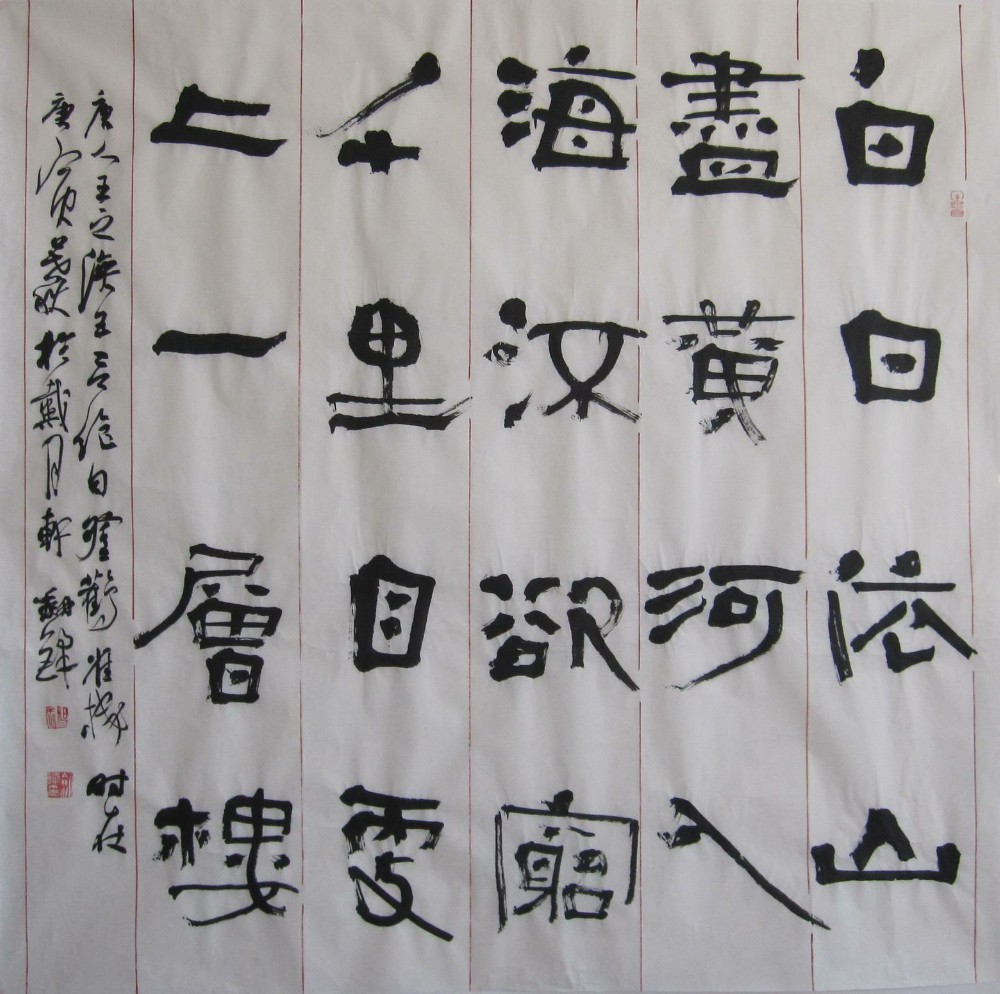 白日依山
盡黄河入
海流欲窮
千里目更
上一層樓
唐人王之渙五言絶句登鸛雀樓 时在
庚寅秋於戴月軒